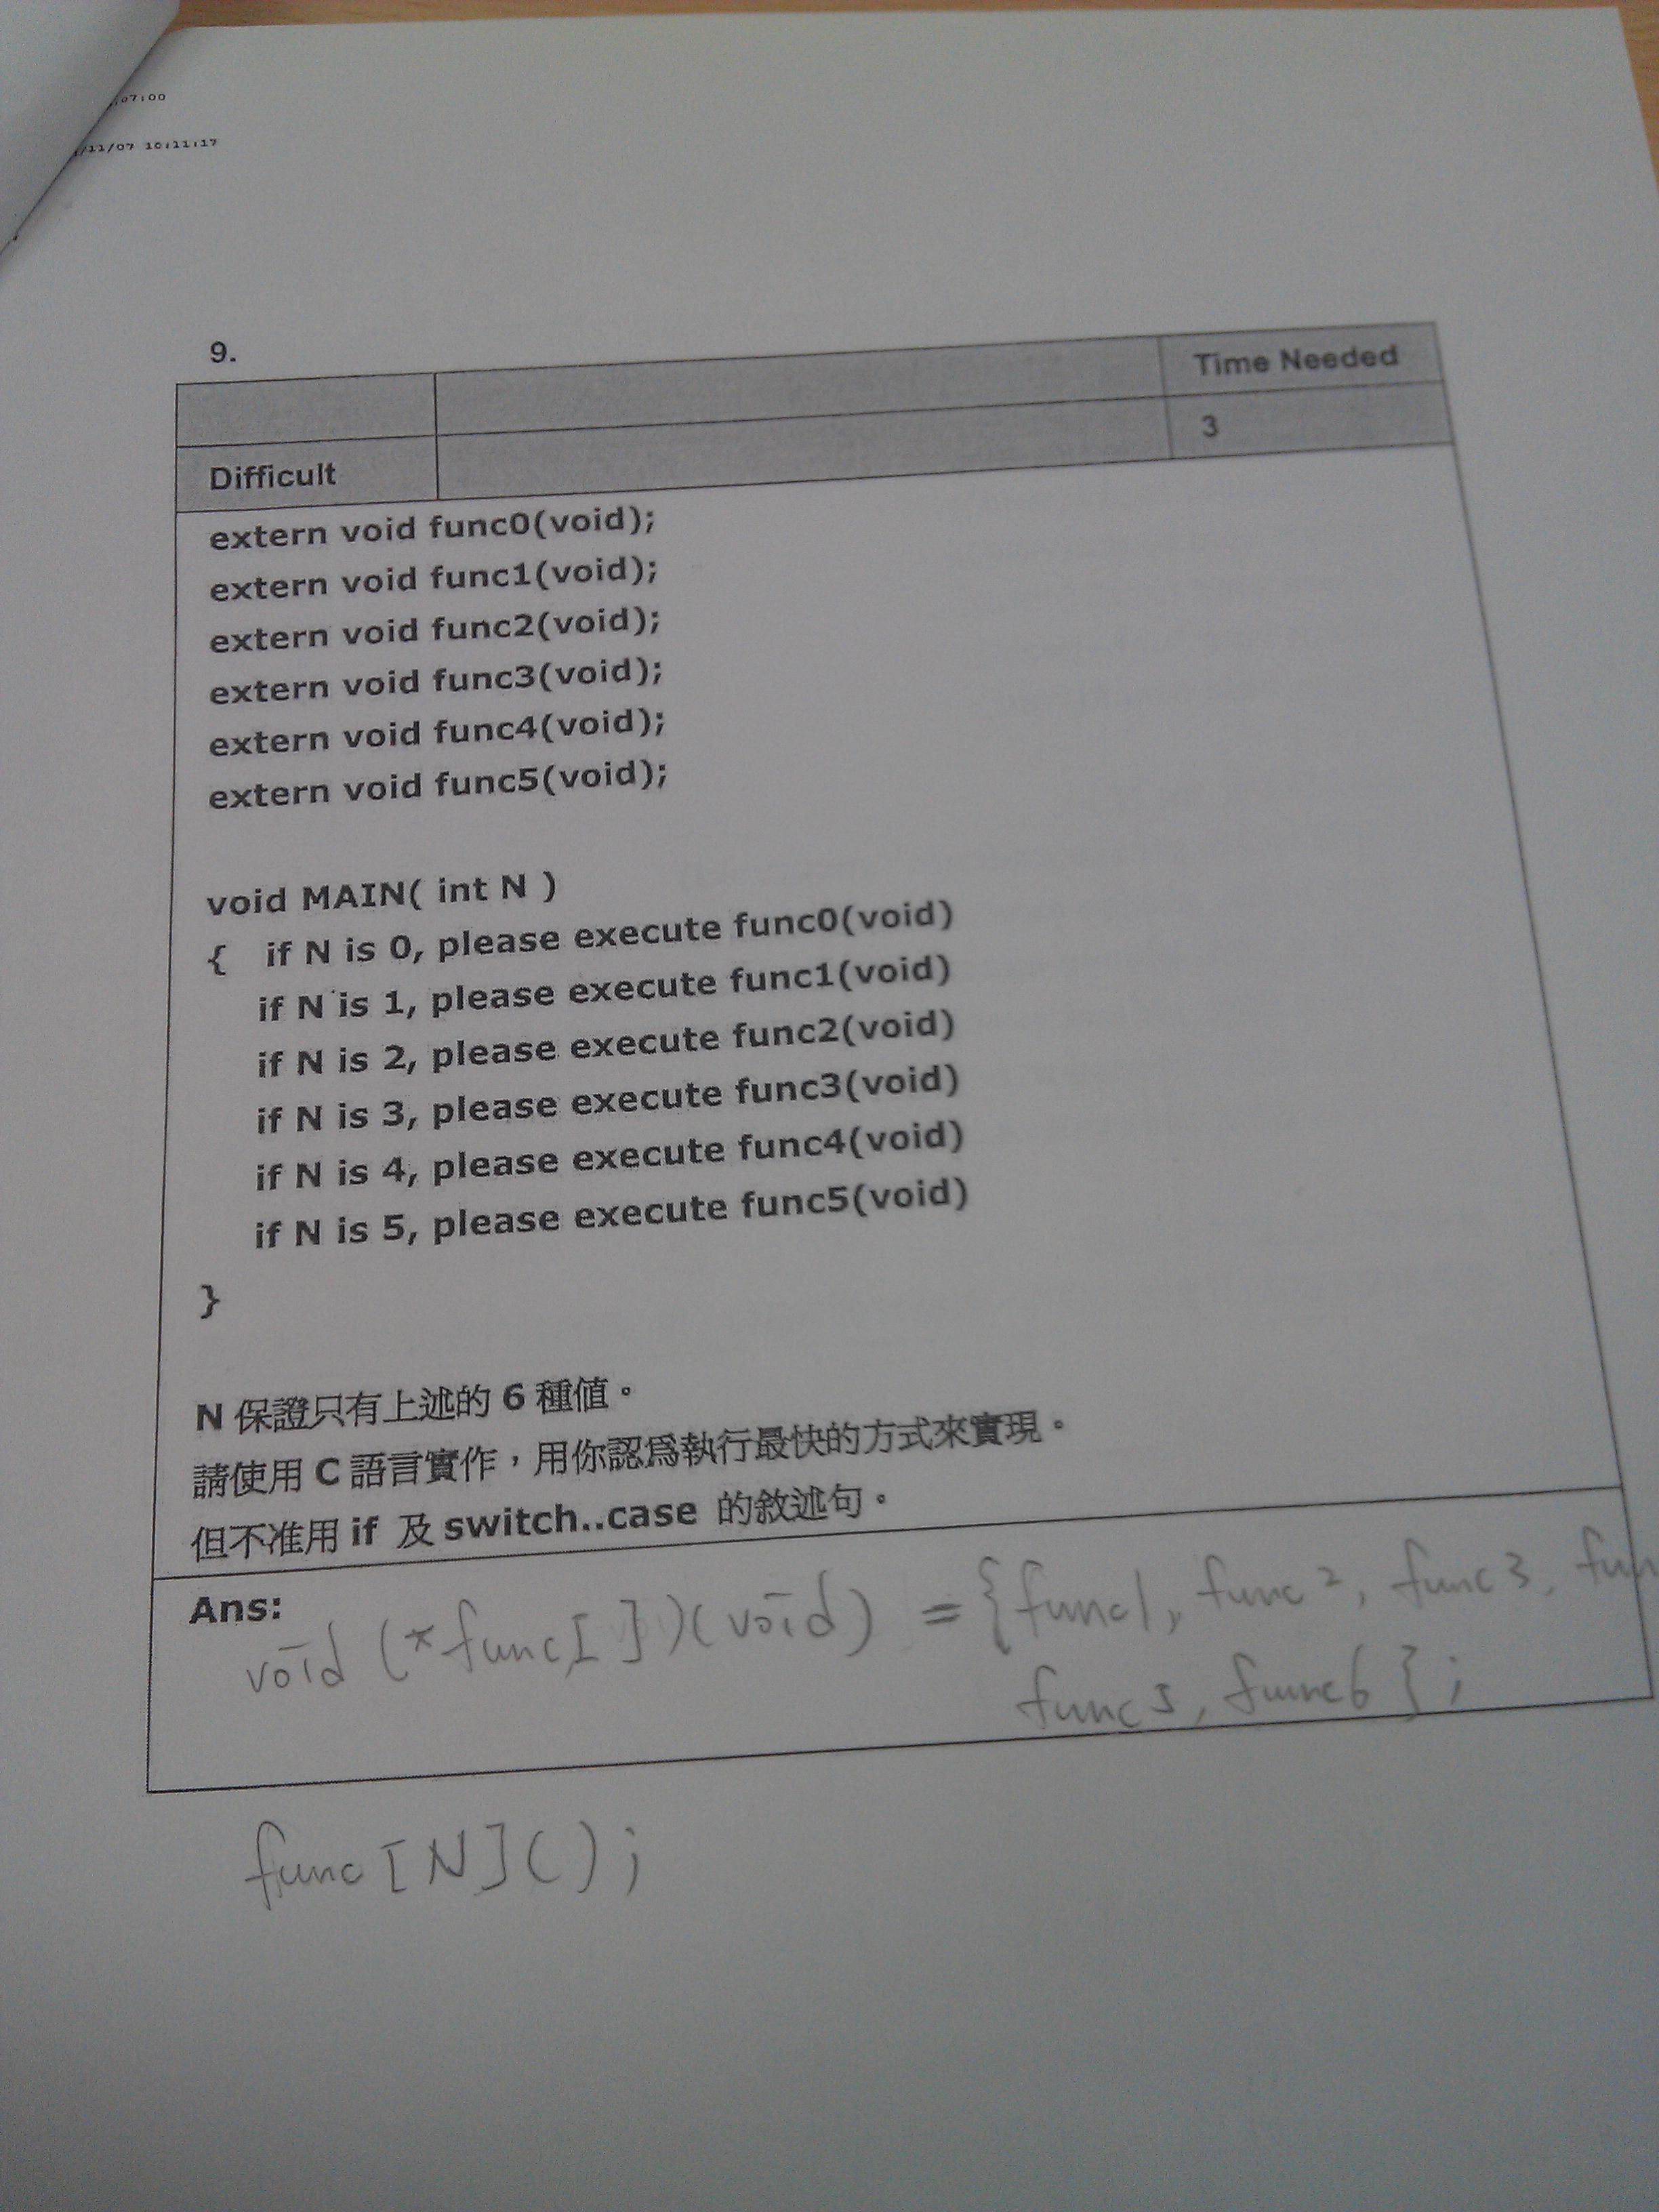 :07:00
/11/07 10:11:17
9.
Time Needed
3
Difficult
extern void func0(void);
extern void func1(void);
extern void func2(void);
extern void func3(void);
extern void func4(void);
extern void func5(void);
void MAIN( int N )
{ if N is 0, please execute func0(void)
if N is 1, please execute func1(void)
if N is 2, please execute func2(void)
if N is 3, please execute func3(void)
if N is 4, please execute func4(void)
if N is 5, please execute func5(void)
}
N 保證只有上述的 6 種值。
請使用 C 語言實作，用你認為執行最快的方式來實現。
但不准用 if 及 switch..case 的敘述句。
Ans:
void (*func[ ])(void) = {func1, func2, func3, fun
func5, func6};
func[N]();